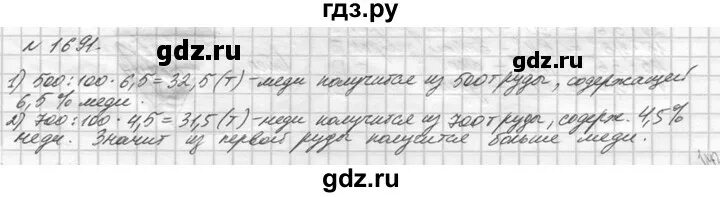 гдз.ру
N 1691.
gdz.ru gdz.ru
1) 500:100·6,5=32,5(т)-меди получится из 500т руды, содержащей
6,5% меди.
2) 700:100·4,5=31,5(т)-меди получится из 700т руды, содерж. 4,5%
меди. Значит из первой руды получится больше меди.
gdz.ru gdz.ru